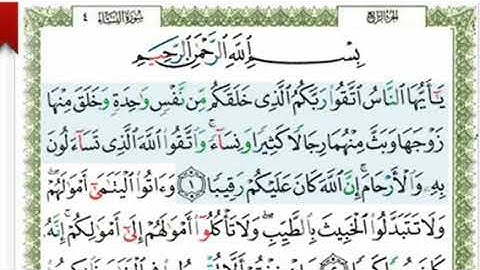 الجزء الرابع سورة النساء ٤
بِسْمِ ٱللَّهِ ٱلرَّحْمَٰنِ ٱلرَّحِيمِ
يَٰٓأَيُّهَا ٱلنَّاسُ ٱتَّقُوا۟ رَبَّكُمُ ٱلَّذِى خَلَقَكُم مِّن نَّفْسٍ وَٰحِدَةٍ وَخَلَقَ مِنْهَا
زَوْجَهَا وَبَثَّ مِنْهُمَا رِجَالًا كَثِيرًا وَنِسَآءً ۚ وَٱتَّقُوا۟ ٱللَّهَ ٱلَّذِى تَسَآءَلُونَ
بِهِۦ وَٱلْأَرْحَامَ ۚ إِنَّ ٱللَّهَ كَانَ عَلَيْكُمْ رَقِيبًا ﴿١﴾ وَءَاتُوا۟ ٱلْيَتَٰمَىٰٓ أَمْوَٰلَهُمْ ۖ
وَلَا تَتَبَدَّلُوا۟ ٱلْخَبِيثَ بِٱلطَّيِّبِ ۖ وَلَا تَأْكُلُوٓا۟ أَمْوَٰلَهُمْ إِلَىٰٓ أَمْوَٰلِكُمْ ۚ إِنَّهُۥ